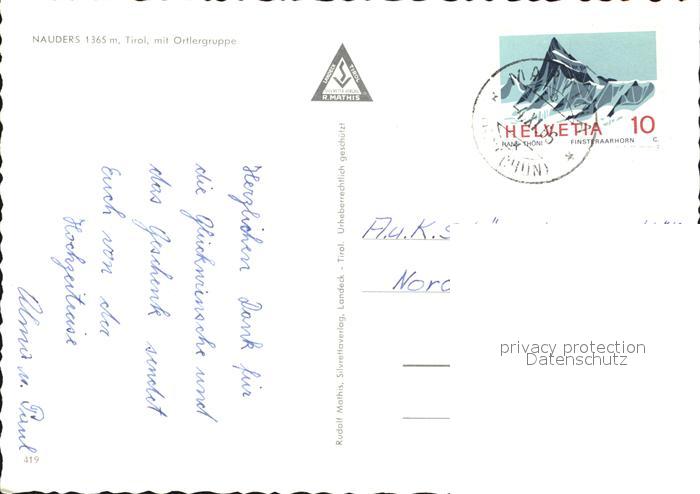 NAUDERS 1365 m, Tirol, mit Ortlergruppe
LANDECK TIROL
SILVRETTA-VERLAG
R. MATHIS
HELVETIA 10
HANS THÖNI FINSTERAARHORN C.
Herzlichen Dank für
die Glückwünsche und
das Geschenk sendet
Euch von der
Hochzeitreise
Alma u. Paul
419
Rudolf Mathis, Silvrettaverlag, Landeck - Tirol. Urheberrechtlich geschützt
A.u.K.S
Nord
privacy protection
Datenschutz